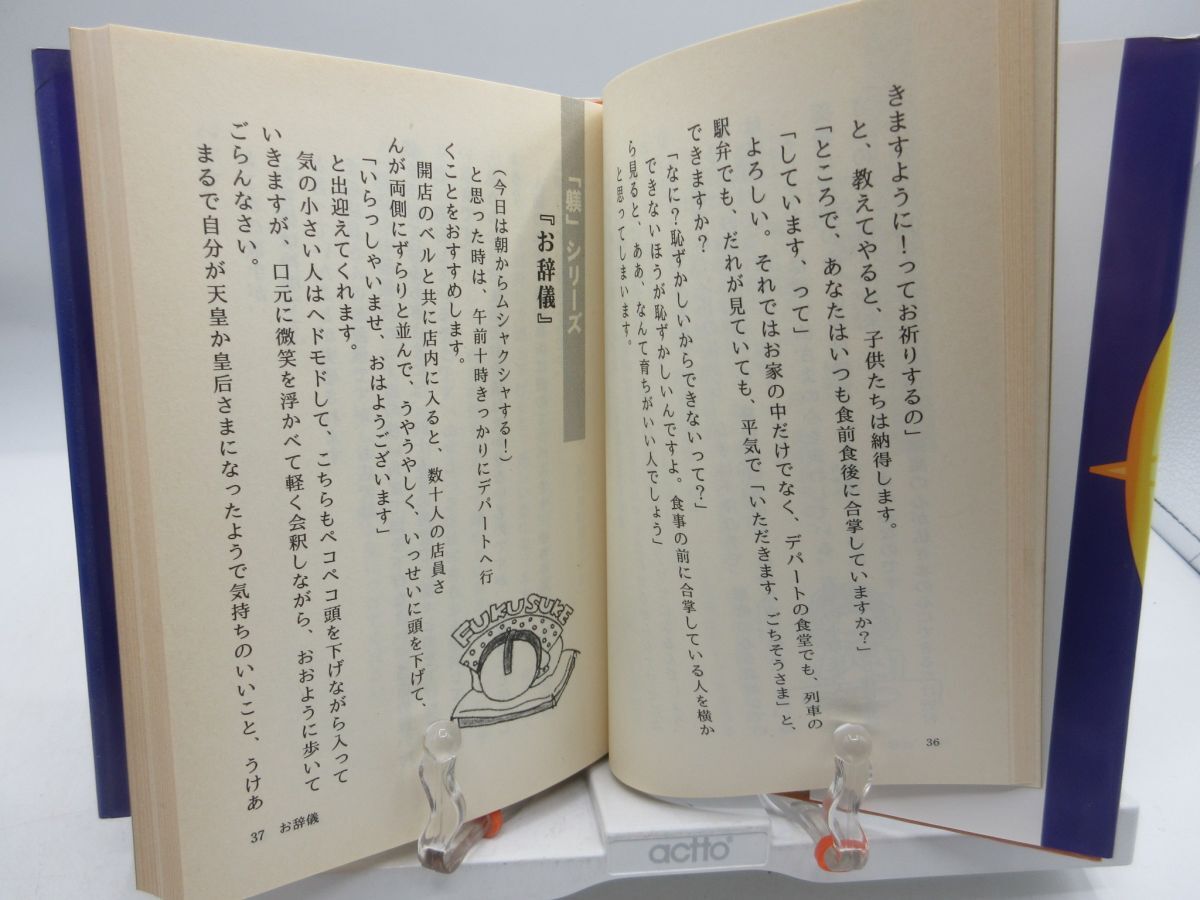 きますように！ってお祈りするの」
と、教えてやると、子供たちは納得します。
「ところで、あなたはいつも食前食後に合掌していますか？」
「しています、って」
よろしい。それではお家の中だけでなく、デパートの食堂でも、列車の
駅弁でも、だれが見ていても、平気で「いただきます、ごちそうさま」と、
できますか？
「なに？恥ずかしいからできないって？」
できないほうが恥ずかしいんですよ。食事の前に合掌している人を横か
ら見ると、ああ、なんて育ちがいい人でしょう」
と思ってしまいます。
36
「躾」シリーズ
『お辞儀』
（今日は朝からムシャクシャする！）
と思った時は、午前十時きっかりにデパートへ行
くことをおすすめします。
開店のベルと共に店内に入ると、数十人の店員さ
んが両側にずらりと並んで、うやうやしく、いっせいに頭を下げて、
「いらっしゃいませ、おはようございます」
と出迎えてくれます。
気の小さい人はヘドモドして、こちらもペコペコ頭を下げながら入って
いきますが、口元に微笑を浮かべて軽く会釈しながら、おおように歩いて
ごらんなさい。
まるで自分が天皇か皇后さまになったようで気持ちのいいこと、うけあ
FUKUSUKE
37 お辞儀
actto